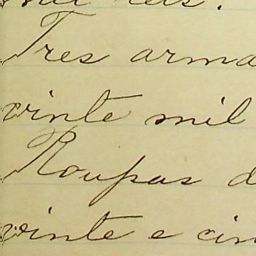 mil reis.
Tres arma
vinte mil
Roupas d
vinte e cin